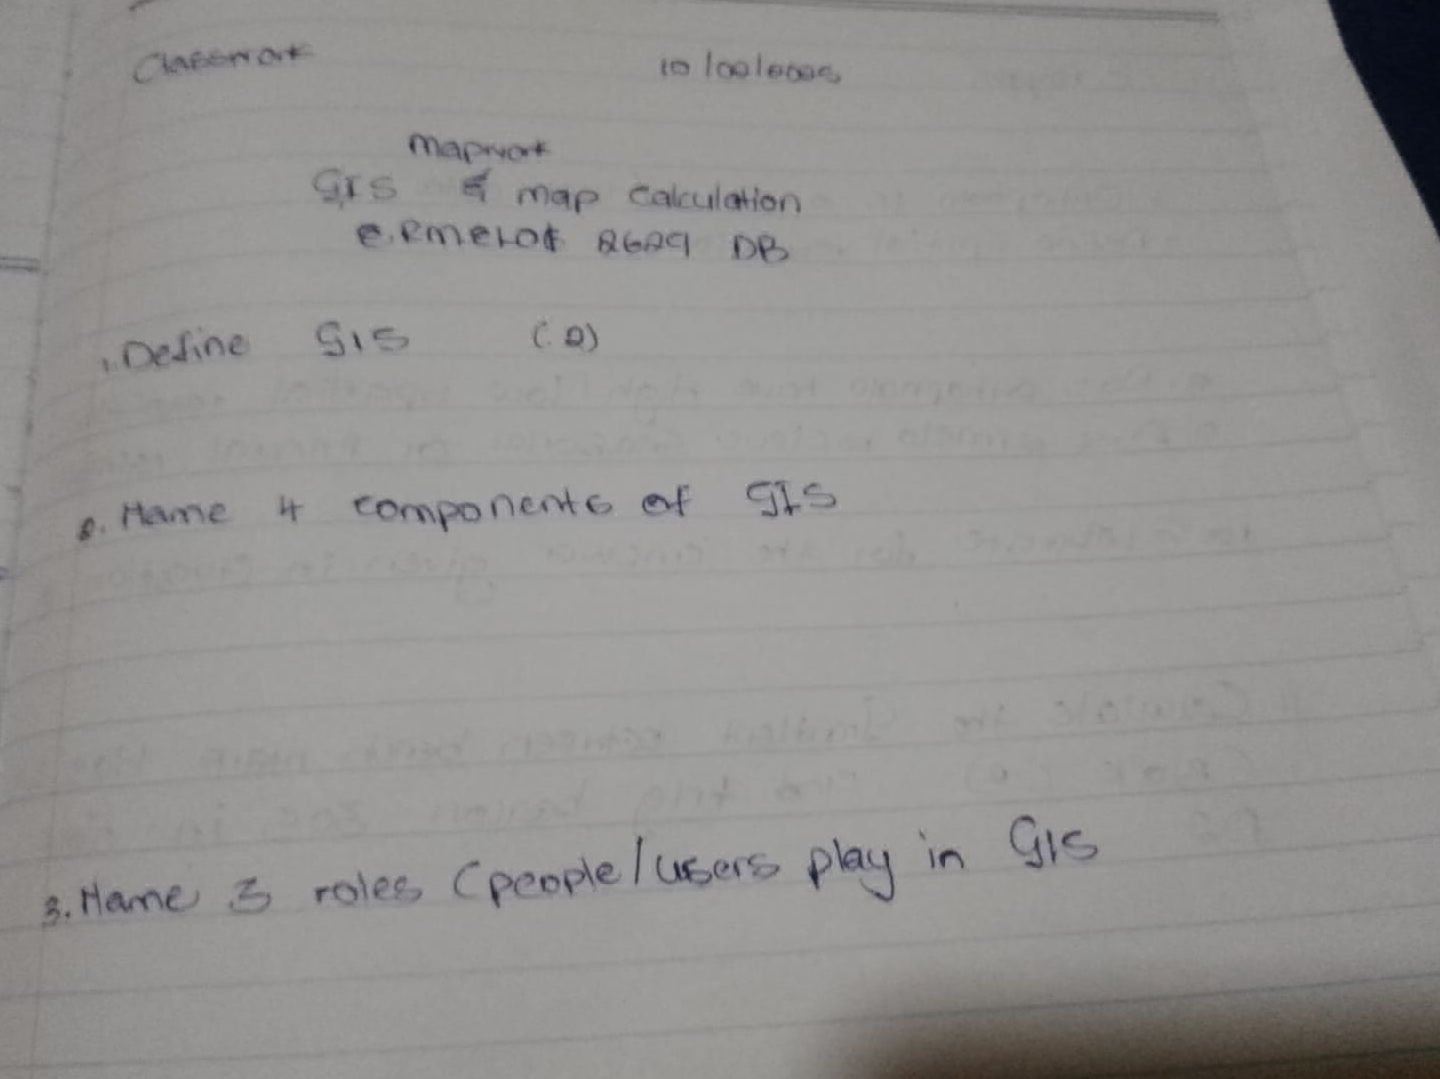 Classwork
Mapwork
GIS & map calculation
e.Rmelo# 2629 DB
1. Define GIS (2)
2. Name 4 components of GIS
3. Name 3 roles (people/users play in GIS